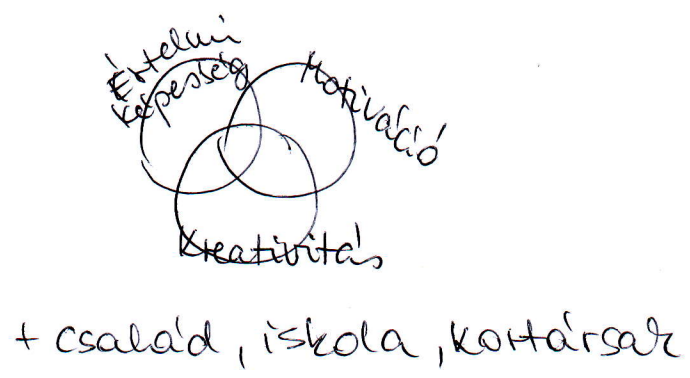 Értelmi
képesség
Motiváció
Kreativitás
+ család, iskola, kortársak